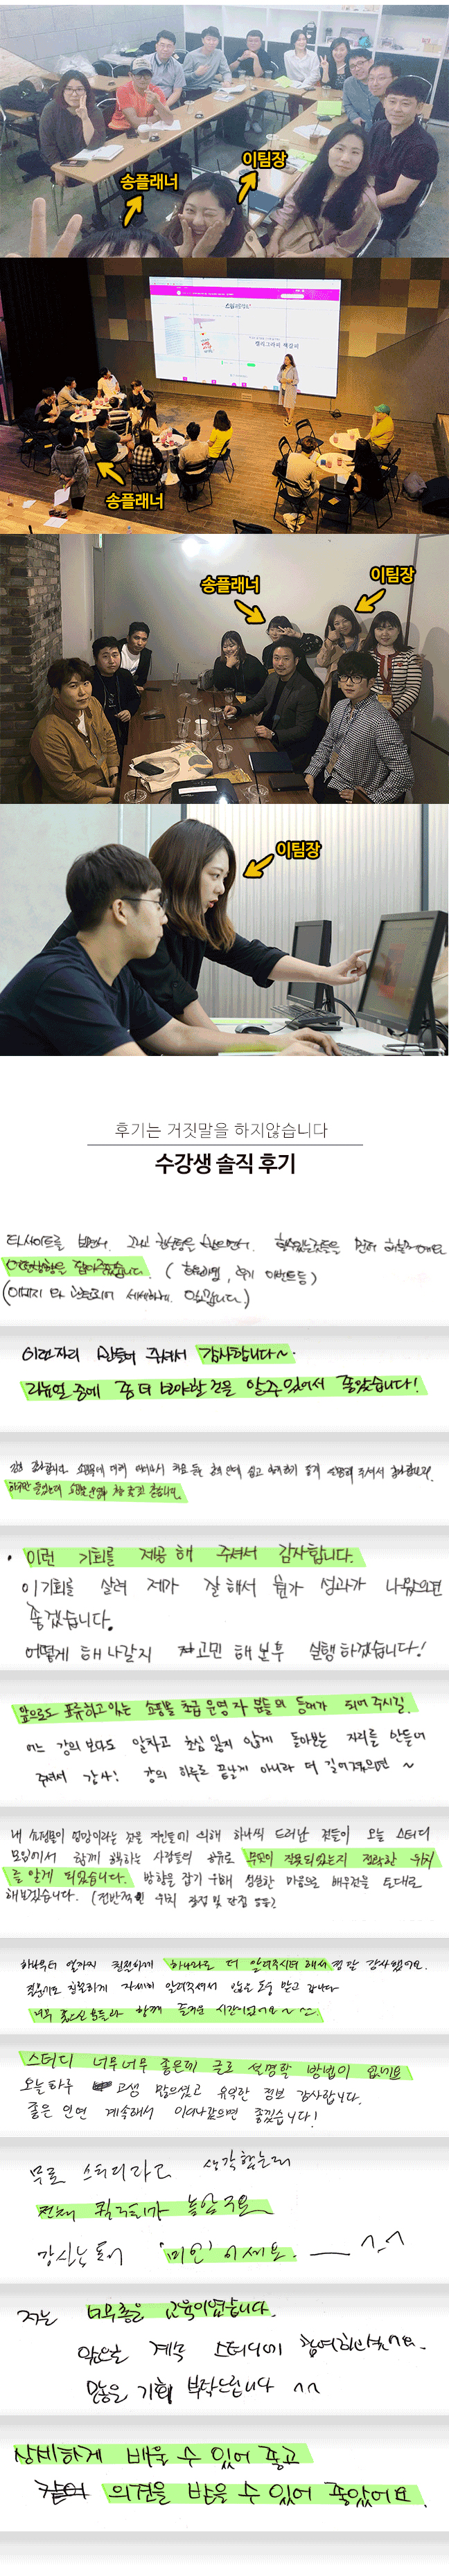 이팀장
송플래너
캘리그라피 책갈피
송플래너
송플래너
이팀장
이팀장
후기는 거짓말을 하지않습니다
수강생 솔직 후기
타사이트를 보면서
이런자리 만들어 주셔서 감사합니다~
리뉴얼 중에 좀 더 보완할 것을 알수 있어서 좋았습니다!
이런 기회를 제공해 주셔서 감사합니다.
이 기회를 살려 제가 잘해서 뭔가 성과가 나왔으면
좋겠습니다.
어떻게 해 나갈지 고민 해본후 실행하겠습니다!
앞으로도 표류하고 있는 쇼핑몰 초급 운영자 분들의 등대가 되어주시길.
어느 강의보다도 알차고 초심 잃지 않게 돌아보는 자리를 만들어
주셔서 감사! 강의 하루로 끝날게 아니라 더 길어졌으면 ~
내 쇼핑몰이 엉망이라는 것은 지인들에 의해 하나씩 드러난 것들이 오늘 스터디
모임에서 함께 해주신 사장님들의 공유로 무엇이 잘못되었는지 정확한 위치
를 알게 되었습니다. 방향을 잡기 위해 성실한 마음으로 배우면을 토대로
해보겠습니다.
하나부터 열까지 친절하게 하나라도 더 알려주시려 해서 정말 감사했어요.
질문에도 친절하게 자세히 알려주셔서 많은 도움 받고 갑니다
너무 좋으신 분들과 함께 즐거운 시간이었어요~^^
스터디 너무너무 좋은데 글로 설명할 방법이 없네요
오늘하루 고생 많으셨고 유익한 정보 감사합니다.
좋은 인연 계속해서 이어나갔으면 좋겠습니다!
무료 스터디라고 생각했는데
전혀 퀄리티가 높았구요
강사님들이 '미인'이세요. ^-^
저는 너무좋은 교육이였습니다.
앞으로 계속 스터디에 참여하고싶어요.
많은 기회 부탁드립니다 ^^
상세하게 배울 수 있어 좋고
같이 의견을 받을 수 있어 좋았어요.